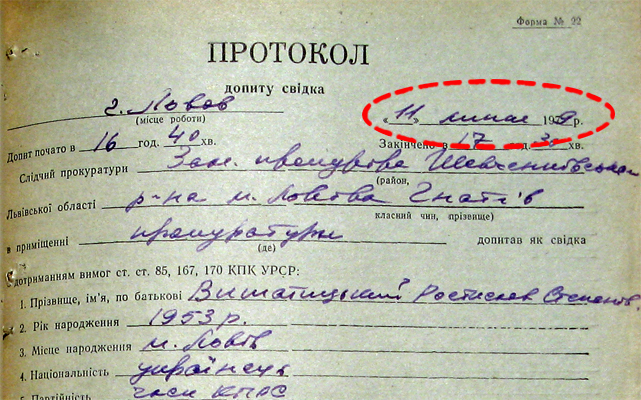 Форма № 22
ПРОТОКОЛ
допиту свідка
г. Львов
(місце роботи)
«11» липня 1979 р.
Допит почато в 16 год. 40 хв.
Закінчено в 17 год. 30 хв.
Слідчий прокуратури Зам. прокурора Шевченківського
(район,
Львівської області р-на м. Львова Гнатів
класний чин, прізвище)
в приміщенні прокуратури допитав як свідка
(де)
з дотриманням вимог ст. ст. 85, 167, 170 КПК УРСР:
1. Прізвище, ім'я, по батькові Вишатицький Ростислав Степанов.
2. Рік народження 1953 р.
3. Місце народження м. Львів
4. Національність українець
5. Партійність член КПРС